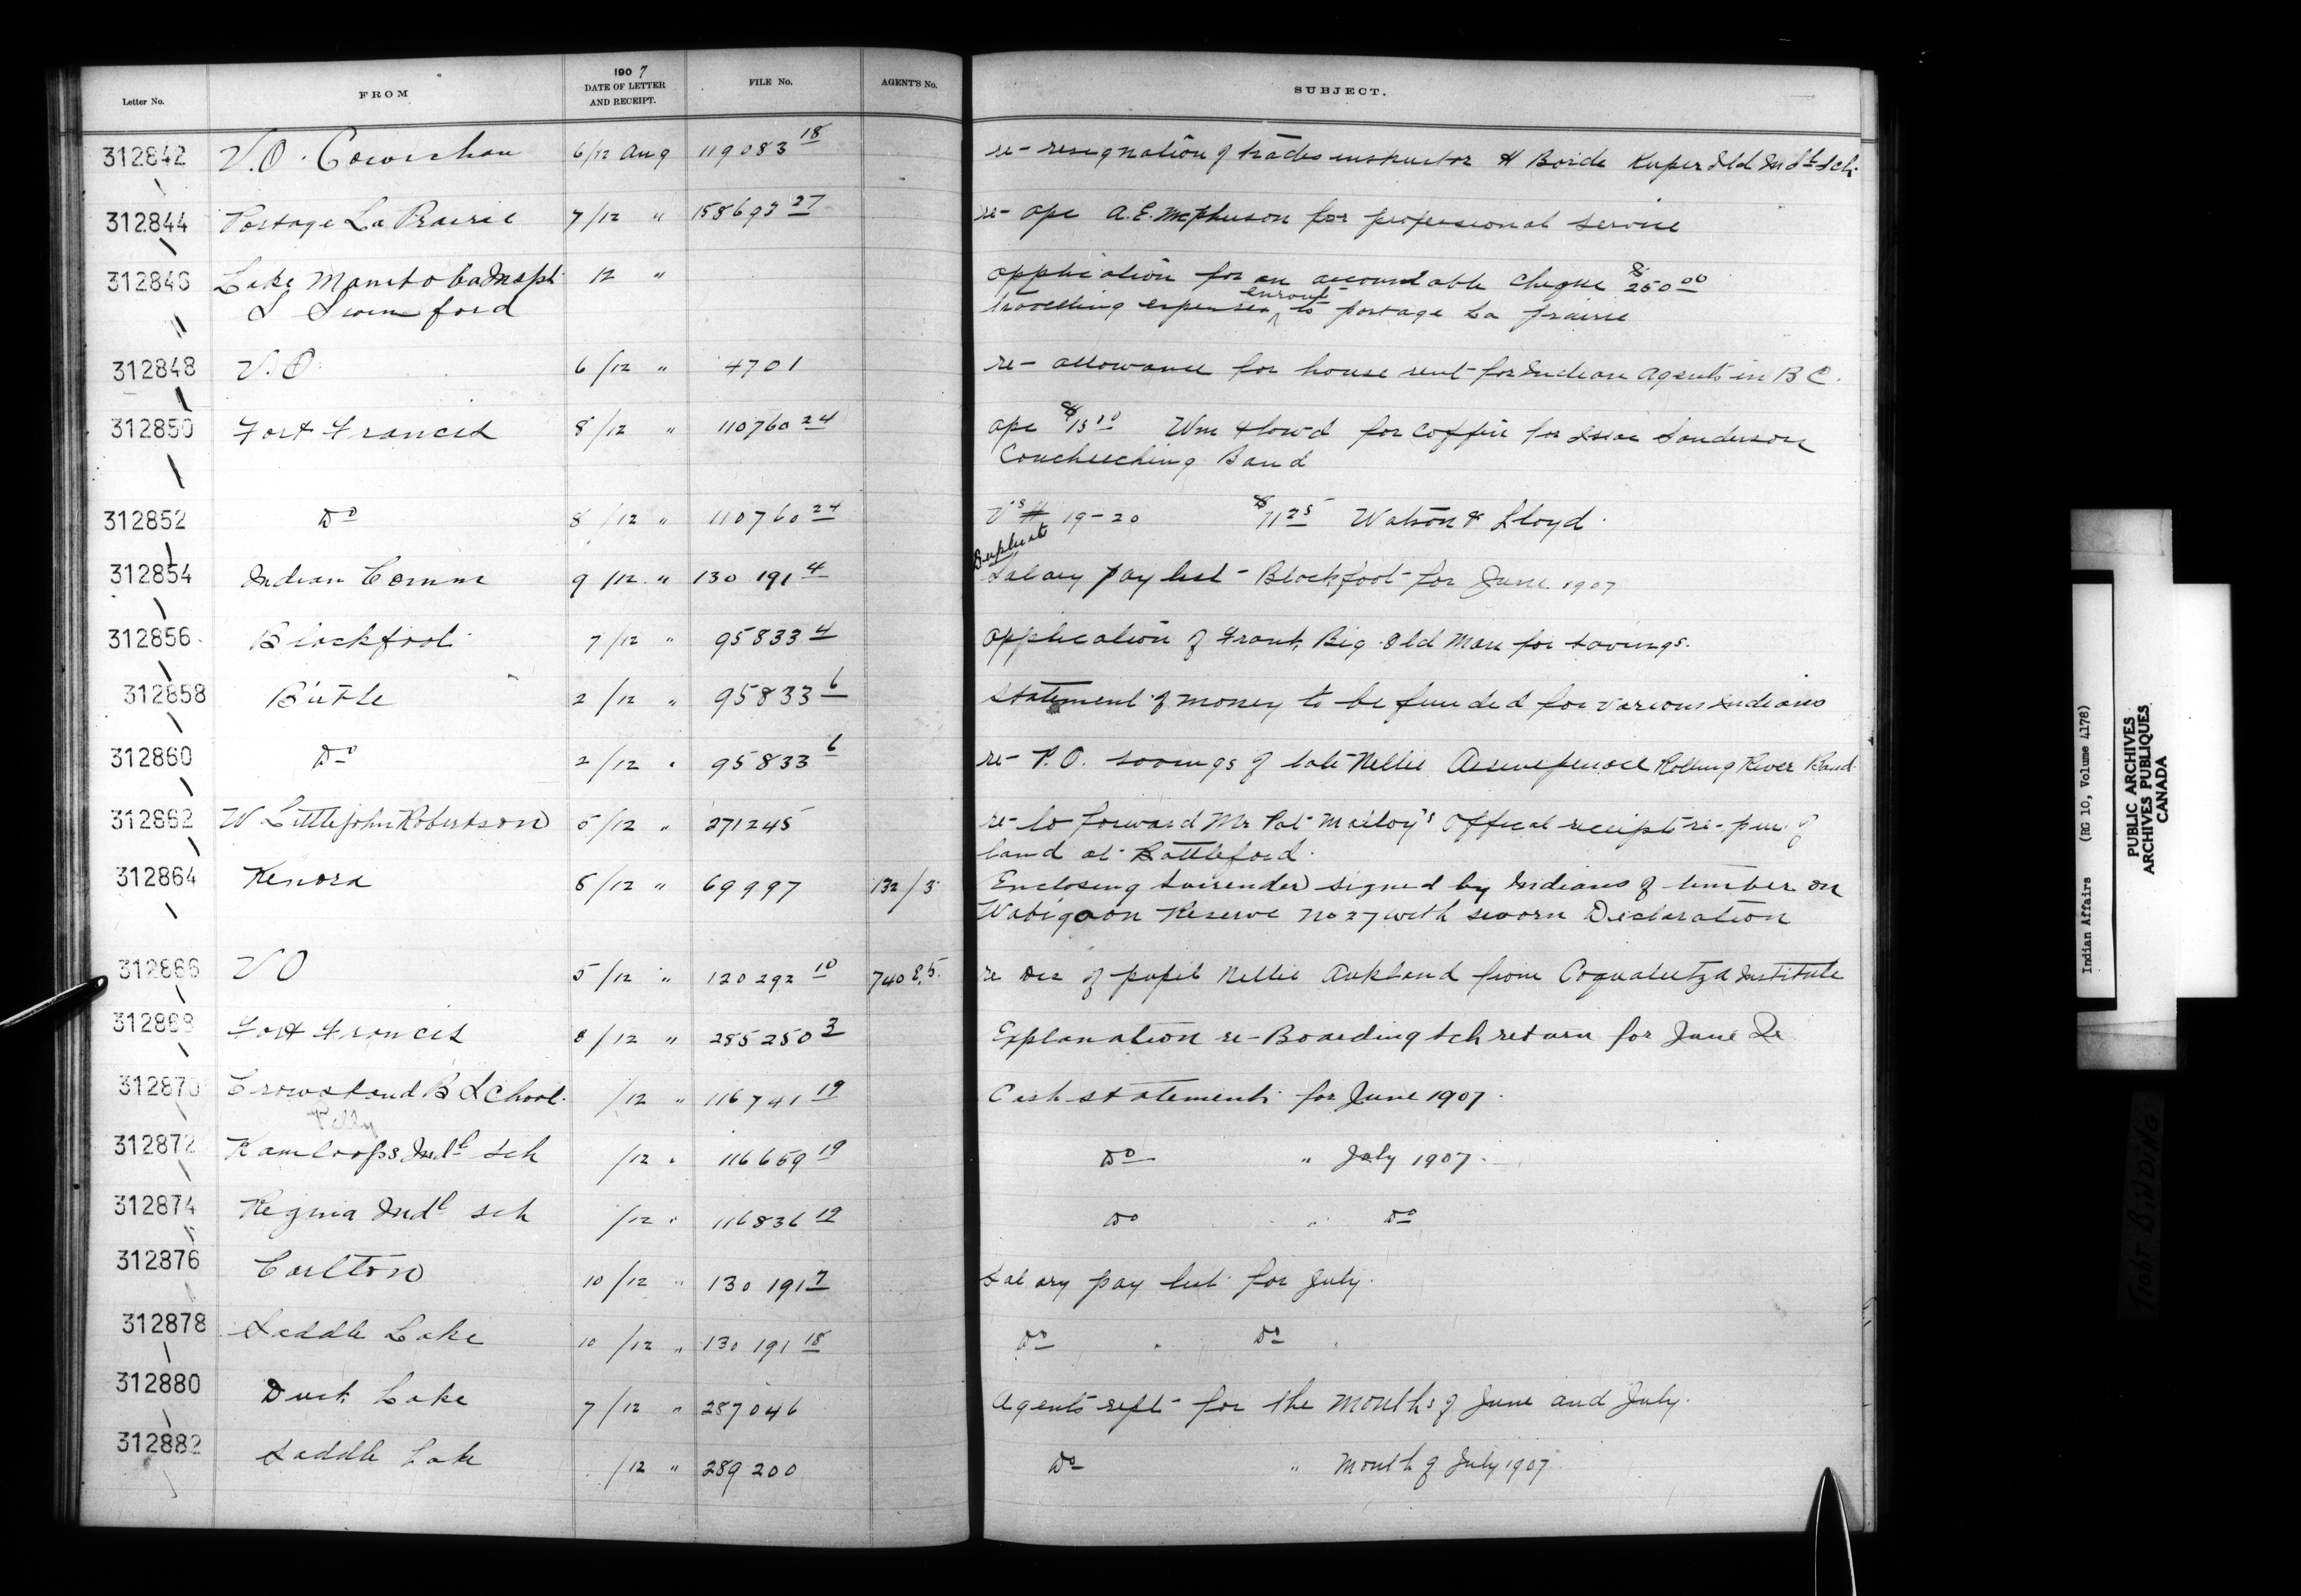 Letter No. FROM 1907 DATE OF LETTER AND RECEIPT. FILE No. AGENT'S No. SUBJECT.
312842 V.O. Cowichan 6/12 Aug 119083 18 re- resignation of trades instructor H Boide Kuper Isld Indl Sch.
312844 Portage La Prairie 7/12 " 158693 27 re- apc A.E. McPherson for professional service
312846 Lake Manitoba Inspt 12 " application for an accountable cheque $250 00
S Swinford travelling expenses enroute to portage La prairie
312848 V.O. 6/12 " 4701 re- allowance for house rent for Indian Agents in B C.
312850 Fort Francis 8/12 " 110760 24 apc $15 00 Wm for coffin for Isaac Sanderson
Couchecching Band
312852 Do 8/12 " 110760 24 19-20 $11 25 Watson & Lloyd.
Duplicate
312854 Indian Comm 9/12 " 130 191 4 Salary pay list - Blackfoot for June 1907
312856 Blackfoot 7/12 " 95833 4 application of Frank Big Old Man for savings.
312858 Birtle 2/12 " 95833 6 statement of money to be funded for various Indians
312860 Do 2/12 " 95833 6 re- P.O. savings of late Nellie Rolling River Band
312862 W Littlejohn Robertson 5/12 " 271245 re- to forward Mr Pat Malloy's Offical receipt re- pur. of
land at Battleford.
312864 Kenora 5/12 " 69997 132/3 Enclosing surrender signed by Indians of timber on
Wabigoon Reserve No 27 with sworn Declaration
312866 V O 5/12 " 120292 10 740 8.5. re Dis of pupil Nellie Aukland from Coqualeetza Institute
312868 Fort Francis 8/12 " 285250 3 Explanation re- Boarding sch return for June Qr
312870 Crowstand B School. /12 " 116741 19 Cash statement for June 1907.
Pelly
312872 Kamloops Indl sch /12 " 116659 19 Do " July 1907.
312874 Regina Indl sch /12 " 116836 19 Do " Do
312876 Carlton 10/12 " 130 191 7 Salary pay list for July.
312878 Saddle Lake 10/12 " 130 191 18 Do " Do
312880 Duck Lake 7/12 " 287046 Agents rept for the months of June and July.
312882 Saddle Lake /12 " 289200 Do " Month of July 1907.
Indian Affairs (RG 10, Volume 4178)
PUBLIC ARCHIVES
ARCHIVES PUBLIQUES
CANADA
TIGHT BINDING